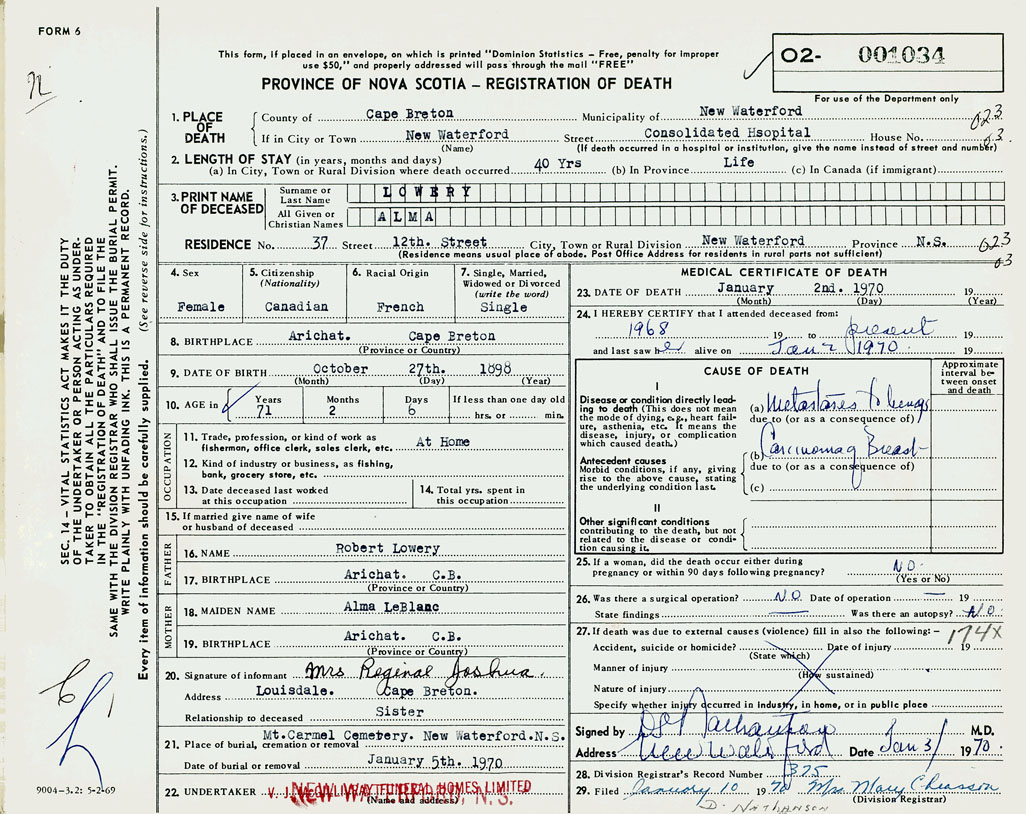 FORM 6
This form, if placed in an envelope, on which is printed "Dominion Statistics – Free, penalty for improper
use $50," and properly addressed will pass through the mail "FREE"
PROVINCE OF NOVA SCOTIA – REGISTRATION OF DEATH
02- 001034
For use of the Department only
SEC. 14 – VITAL STATISTICS ACT MAKES IT THE DUTY
OF THE UNDERTAKER OR PERSON ACTING AS UNDER-
TAKER TO OBTAIN ALL THE PARTICULARS REQUIRED
IN THE "REGISTRATION OF DEATH" AND TO FILE THE
SAME WITH THE DIVISION REGISTRAR WHO SHALL ISSUE THE BURIAL PERMIT.
WRITE PLAINLY WITH UNFADING INK. THIS IS A PERMANENT RECORD.
Every item of information should be carefully supplied. (See reverse side for instructions.)
1. PLACE OF DEATH
County of Cape Breton Municipality of New Waterford
023
If in City or Town New Waterford Street Consolidated Hsopital House No.
03
(Name) (If death occurred in a hospital or institution, give the name instead of street and number)
2. LENGTH OF STAY (in years, months and days)
(a) In City, Town or Rural Division where death occurred 40 Yrs (b) In Province Life (c) In Canada (if immigrant)
3. PRINT NAME OF DECEASED
Surname or Last Name LOWERY
All Given or Christian Names ALMA
RESIDENCE No. 37 Street 12th. Street City, Town or Rural Division New Waterford Province N.S. 023
(Residence means usual place of abode. Post Office Address for residents in rural parts not sufficient) 03
4. Sex
Female
5. Citizenship
(Nationality)
Canadian
6. Racial Origin
French
7. Single, Married,
Widowed or Divorced
(write the word)
Single
8. BIRTHPLACE Arichat. Cape Breton
(Province or Country)
9. DATE OF BIRTH October 27th. 1898
(Month) (Day) (Year)
10. AGE in Years 71 Months 2 Days 6 If less than one day old
hrs. or min.
OCCUPATION
11. Trade, profession, or kind of work as
fisherman, office clerk, sales clerk, etc. At Home
12. Kind of industry or business, as fishing,
bank, grocery store, etc.
13. Date deceased last worked
at this occupation
14. Total yrs. spent in
this occupation
15. If married give name of wife
or husband of deceased
FATHER
16. NAME Robert Lowery
17. BIRTHPLACE Arichat. C.B.
(Province or Country)
MOTHER
18. MAIDEN NAME Alma LeBlanc
19. BIRTHPLACE Arichat. C.B.
(Province or Country)
20. Signature of informant Mrs Reginal Joshua.
Address Louisdale. Cape Breton.
Relationship to deceased Sister
21. Place of burial, cremation or removal Mt.Carmel Cemetery. New Waterford.N.S.
Date of burial or removal January 5th. 1970
22. UNDERTAKER
(Name and address)
9004–3.2: 5-2-69
MEDICAL CERTIFICATE OF DEATH
23. DATE OF DEATH January 2nd. 1970 19
(Month) (Day) (Year)
24. I HEREBY CERTIFY that I attended deceased from:
1968 19 to present 19
and last saw her alive on Jan 2 1970. 19
CAUSE OF DEATH
Approximate
interval be-
tween onset
and death
I
Disease or condition directly lead-
ing to death (This does not mean
the mode of dying, e.g., heart fail-
ure, asthenia, etc. It means the
disease, injury, or complication
which caused death.)
(a) Metastases to lungs
due to (or as a consequence of)
Antecedent causes
Morbid conditions, if any, giving
rise to the above cause, stating
the underlying condition last.
(b) Carcinoma of Breast
due to (or as a consequence of)
(c)
II
Other significant conditions
contributing to the death, but not
related to the disease or condi-
tion causing it.
25. If a woman, did the death occur either during
pregnancy or within 90 days following pregnancy? NO.
(Yes or No)
26. Was there a surgical operation? NO. Date of operation — 19
State findings — Was there an autopsy? NO.
27. If death was due to external causes (violence) fill in also the following:–
174X
Accident, suicide or homicide? Date of injury 19
(State which)
Manner of injury
(How sustained)
Nature of injury
Specify whether injury occurred in industry, in home, or in public place
Signed by M.D.
Address New Waterford Date Jan 3/ 1970.
28. Division Registrar's Record Number 375
29. Filed January 10 1970 Mrs. Mary Chiasson
(Division Registrar)
D. NATHANSON